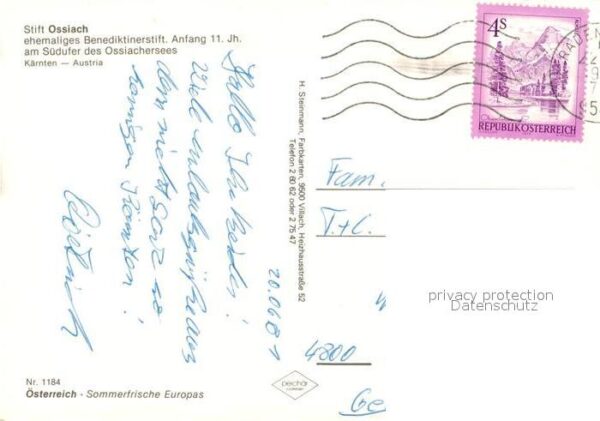 Stift Ossiach
ehemaliges Benediktinerstift. Anfang 11. Jh.
am Südufer des Ossiachersees
Kärnten — Austria
Hallo Ihr beiden!
Viele Urlaubsgrüße aus
dem nicht so
sonnigen Kärnten!
20.06.81
H. Steinmann, Farbkarten, 9500 Villach, Heizhausstraße 52
Telefon 2 80 62 oder 2 75 47
4S
REPUBLIK ÖSTERREICH
Fam.
T.+C.
privacy protection
Datenschutz
4800
Ge
Nr. 1184
Österreich - Sommerfrische Europas